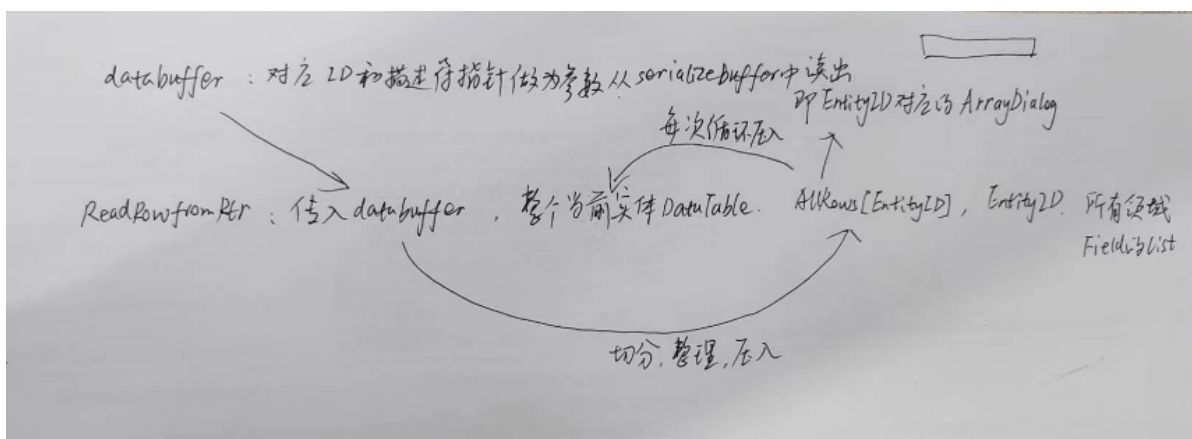 databuffer：对应ID和描述符指针做为参数从serializebuffer中读出
即EntityID对应的ArrayDialog
每次循环压入
ReadRowfromPtr：传入databuffer，整个当前实体DataTable. AllRows[EntityID]，EntityID. 所有领域
Field的list
切分，整理，压入